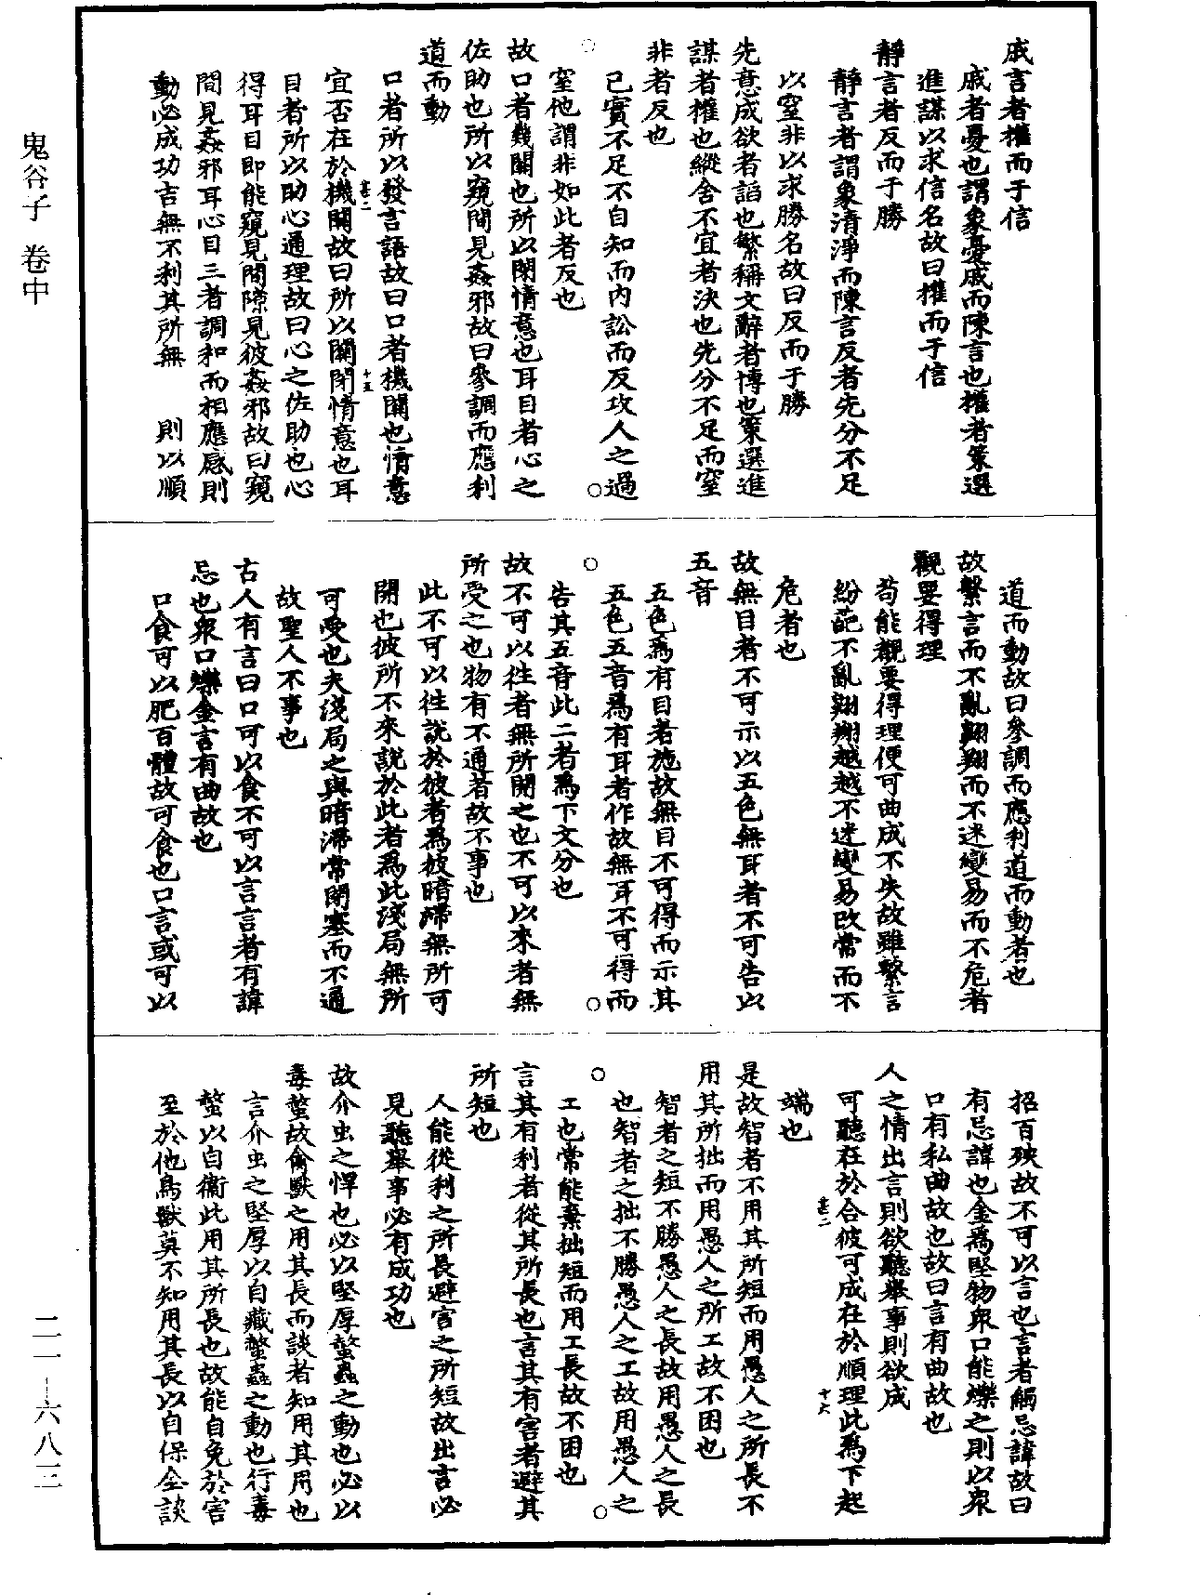 鬼谷子 卷中
戚言者權而于信
戚者憂也謂象憂戚而陳言也權者策選
進謀以求信名故曰權而于信
靜言者反而于勝
靜言者謂象清淨而陳言反者先分不足
以窒非以求勝名故曰反而于勝
先意成欲者謟也繁稱文辭者博也策選進
謀者權也縱舍不宜者決也先分不足而窒
非者反也
己實不足不自知而內訟而反攻人之過
窒他謂非如此者反也
故口者幾關也所以閉情意也耳目者心之
佐助也所以窺間見姦邪故曰參調而應利
道而動
口者所以發言語故曰口者機關也情意
宜否在於機關故曰所以關閉情意也耳
甚二
十五
目者所以助心通理故曰心之佐助也心
得耳目即能窺見間隙見彼姦邪故曰窺
間見姦邪耳心目三者調和而相應感則
動必成功吉無不利其所無 則以順
道而動故曰參調而應利道而動者也
故繫言而不亂翱翔而不迷變易而不危者
觀要得理
苟能觀要得理便可曲成不失故雖繫言
紛葩不亂翱翔越越不迷變易改常而不
危者也
故無目者不可示以五色無耳者不可告以
五音
五色為有目者施故無目不可得而示其
五色五音為有耳者作故無耳不可得而
告其五音此二者為下文分也
故不可以往者無所開之也不可以來者無
所受之也物有不通者故不事也
此不可以往說於彼者為彼暗滯無所可
開也彼所不來說於此者為此淺局無所
可受也夫淺局之與暗滯常閉塞而不通
故聖人不事也
古人有言曰口可以食不可以言言者有諱
忌也眾口爍金言有曲故也
口食可以肥百體故可食也口言或可以
招百殃故不可以言也言者觸忌諱故曰
有忌諱也金為堅物眾口能爍之則以眾
口有私曲故也故曰言有曲故也
人之情出言則欲聽舉事則欲成
可聽在於合彼可成在於順理此為下起
甚二
十六
端也
是故智者不用其所短而用愚人之所長不
用其所拙而用愚人之所工故不困也
智者之短不勝愚人之長故用愚人之長
也智者之拙不勝愚人之工故用愚人之
工也常能棄拙短而用工長故不困也
言其有利者從其所長也言其有害者避其
所短也
人能從利之所長避害之所短故出言必
見聽舉事必有成功也
故介虫之悍也必以堅厚螫蟲之動也必以
毒螫故禽獸之用其長而談者知用其用也
言介虫之堅厚以自藏螫蟲之動也行毒
螫以自衞此用其所長也故能自免於害
至於他鳥獸莫不知用其長以自保全談
二一—六八三